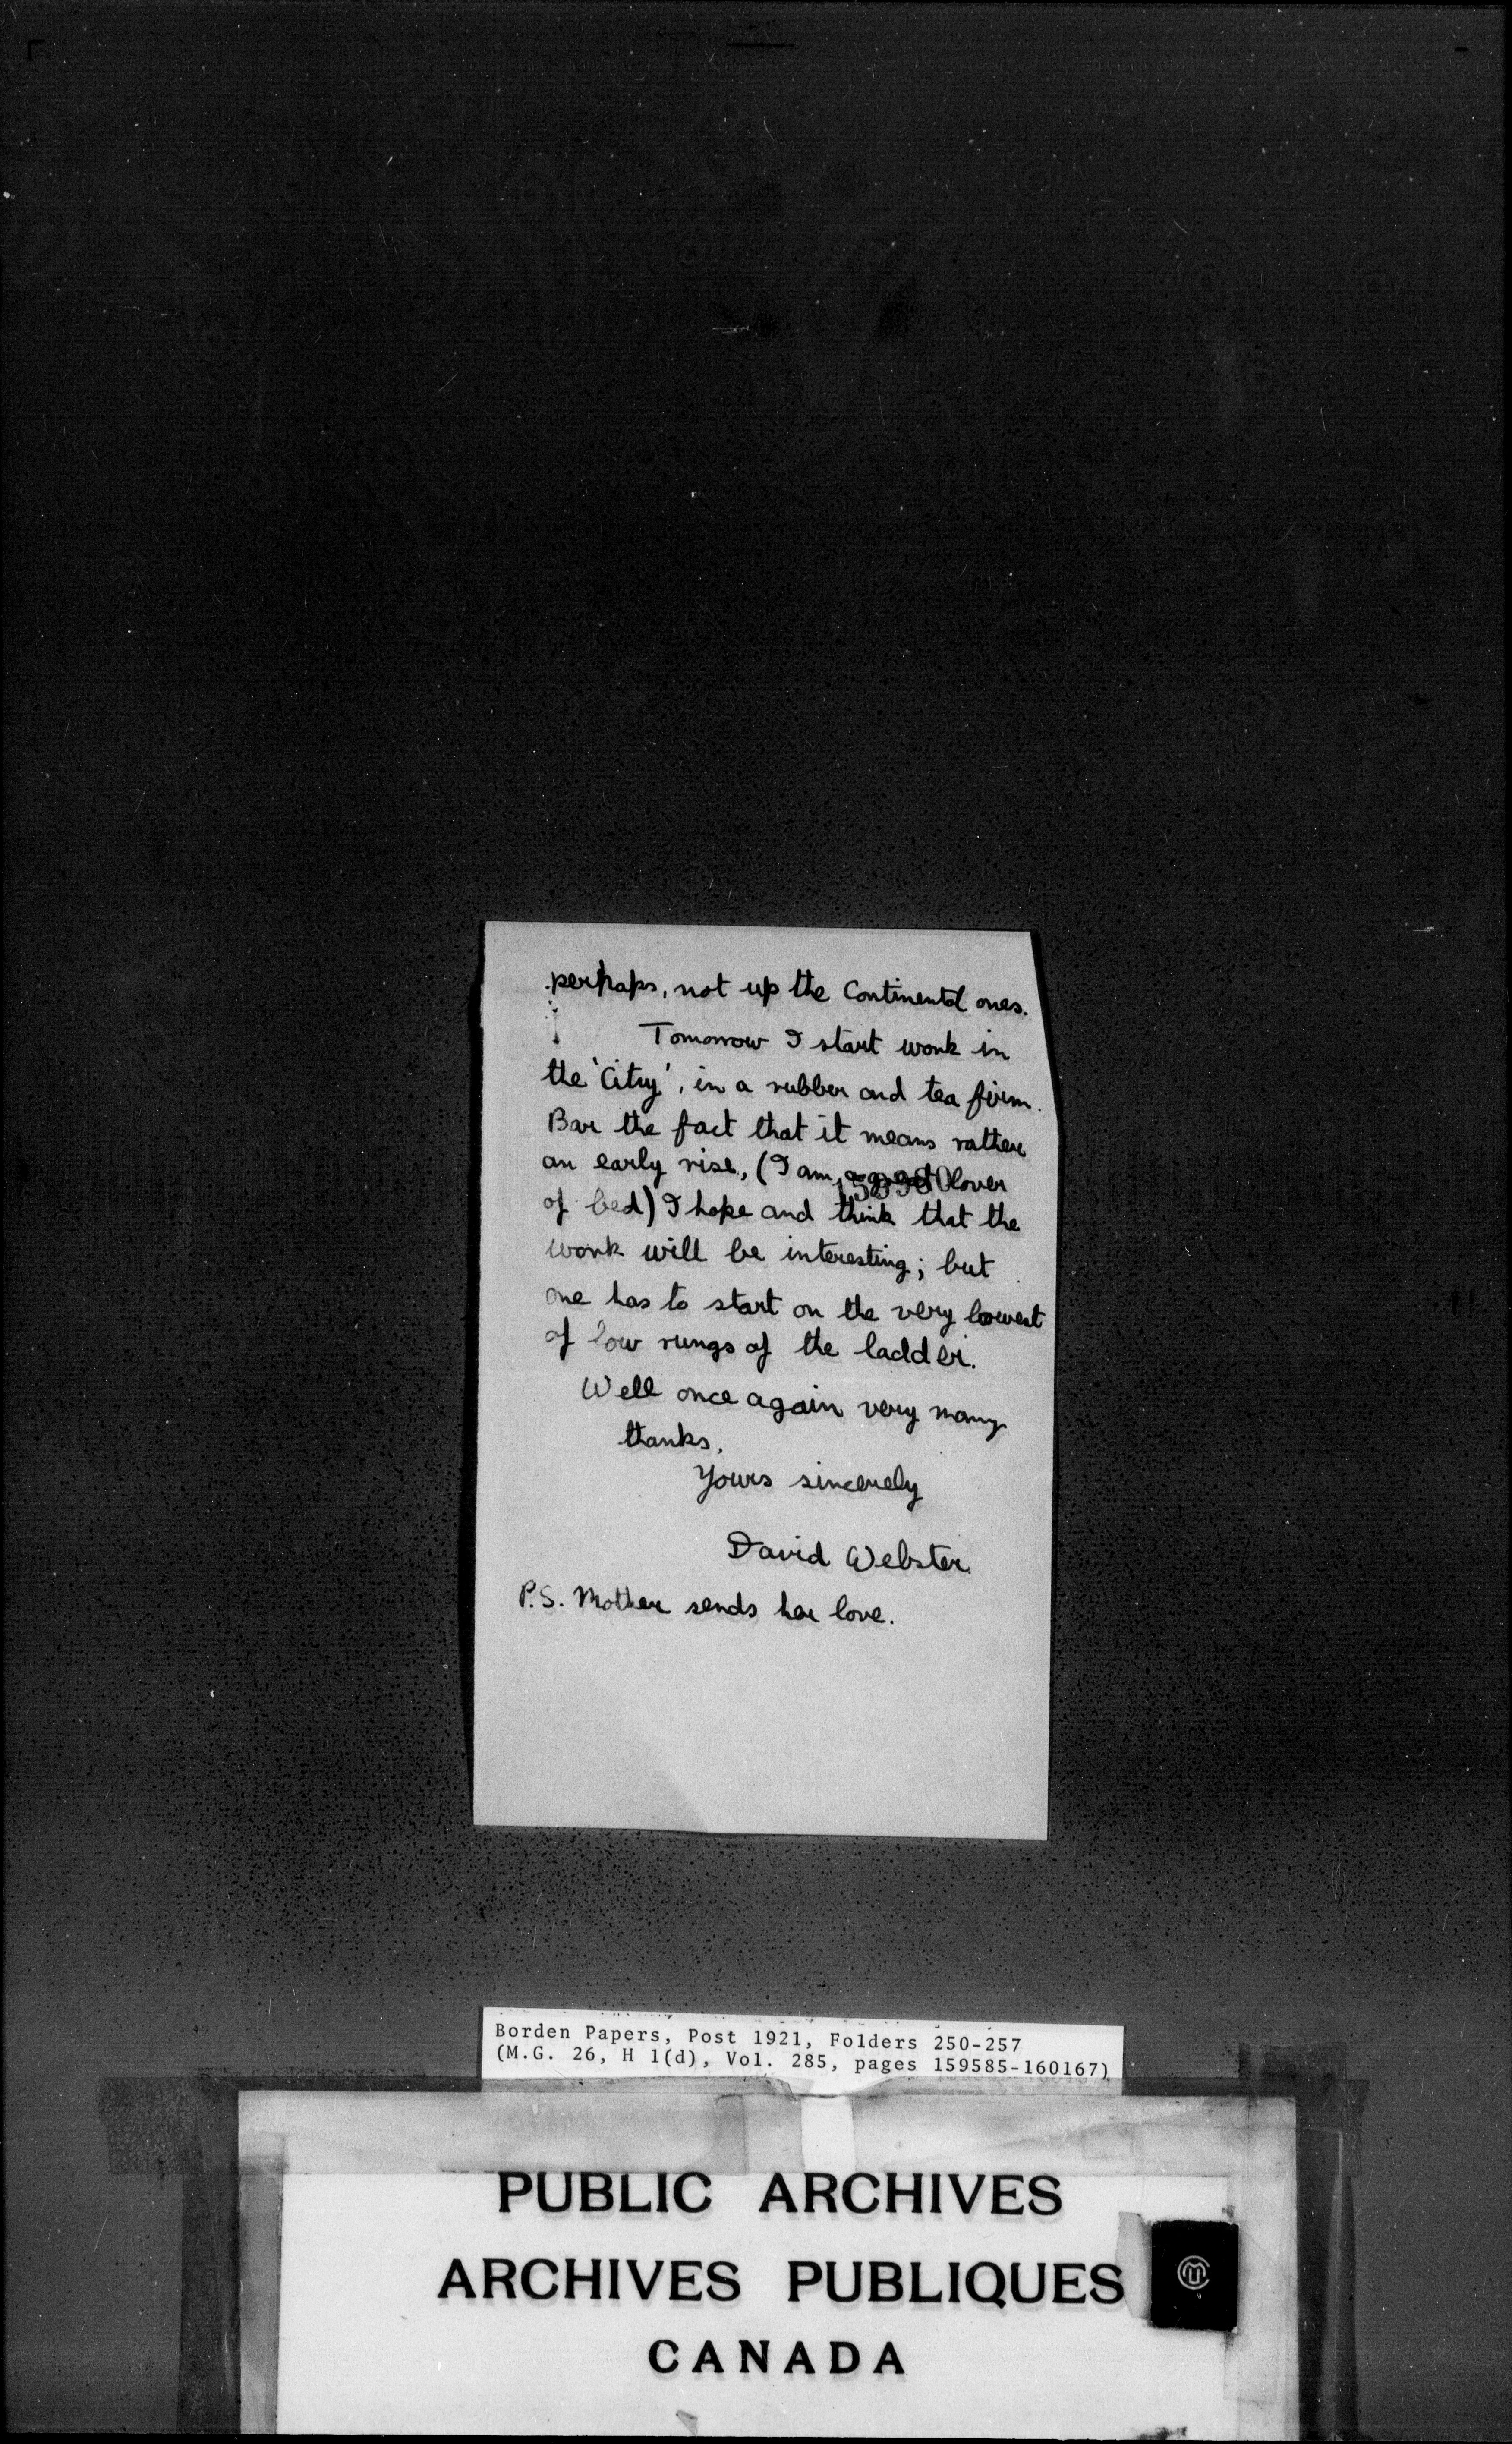 perhaps, not up the Continental ones.
Tomorrow I start work in
the 'City', in a rubber and tea firm.
Bar the fact that it means rather
an early rise, (I am a great lover
of bed) I hope and think that the
work will be interesting; but
one has to start on the very lowest
of low rungs of the ladder.
Well once again very many
thanks.
Yours sincerely
David Webster.
P.S. Mother sends her love.
Borden Papers, Post 1921, Folders 250-257
(M.G. 26, H 1(d), Vol. 285, pages 159585-160167)
PUBLIC ARCHIVES
ARCHIVES PUBLIQUES
CANADA